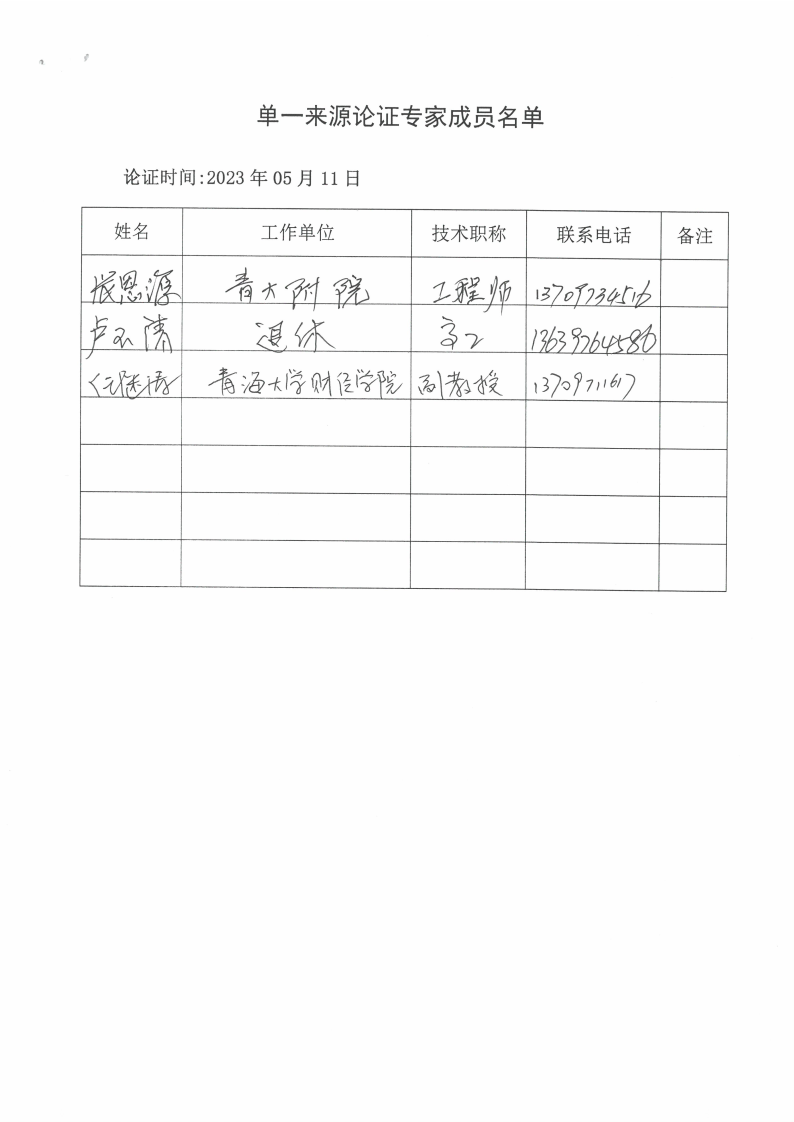 单一来源论证专家成员名单
论证时间:2023年05月11日
姓名 工作单位 技术职称 联系电话 备注
恩源 青大附院 工程师 13709734516
卢玉清 退休 高工 13639764586
青海大学财经学院 副教授 13709711617